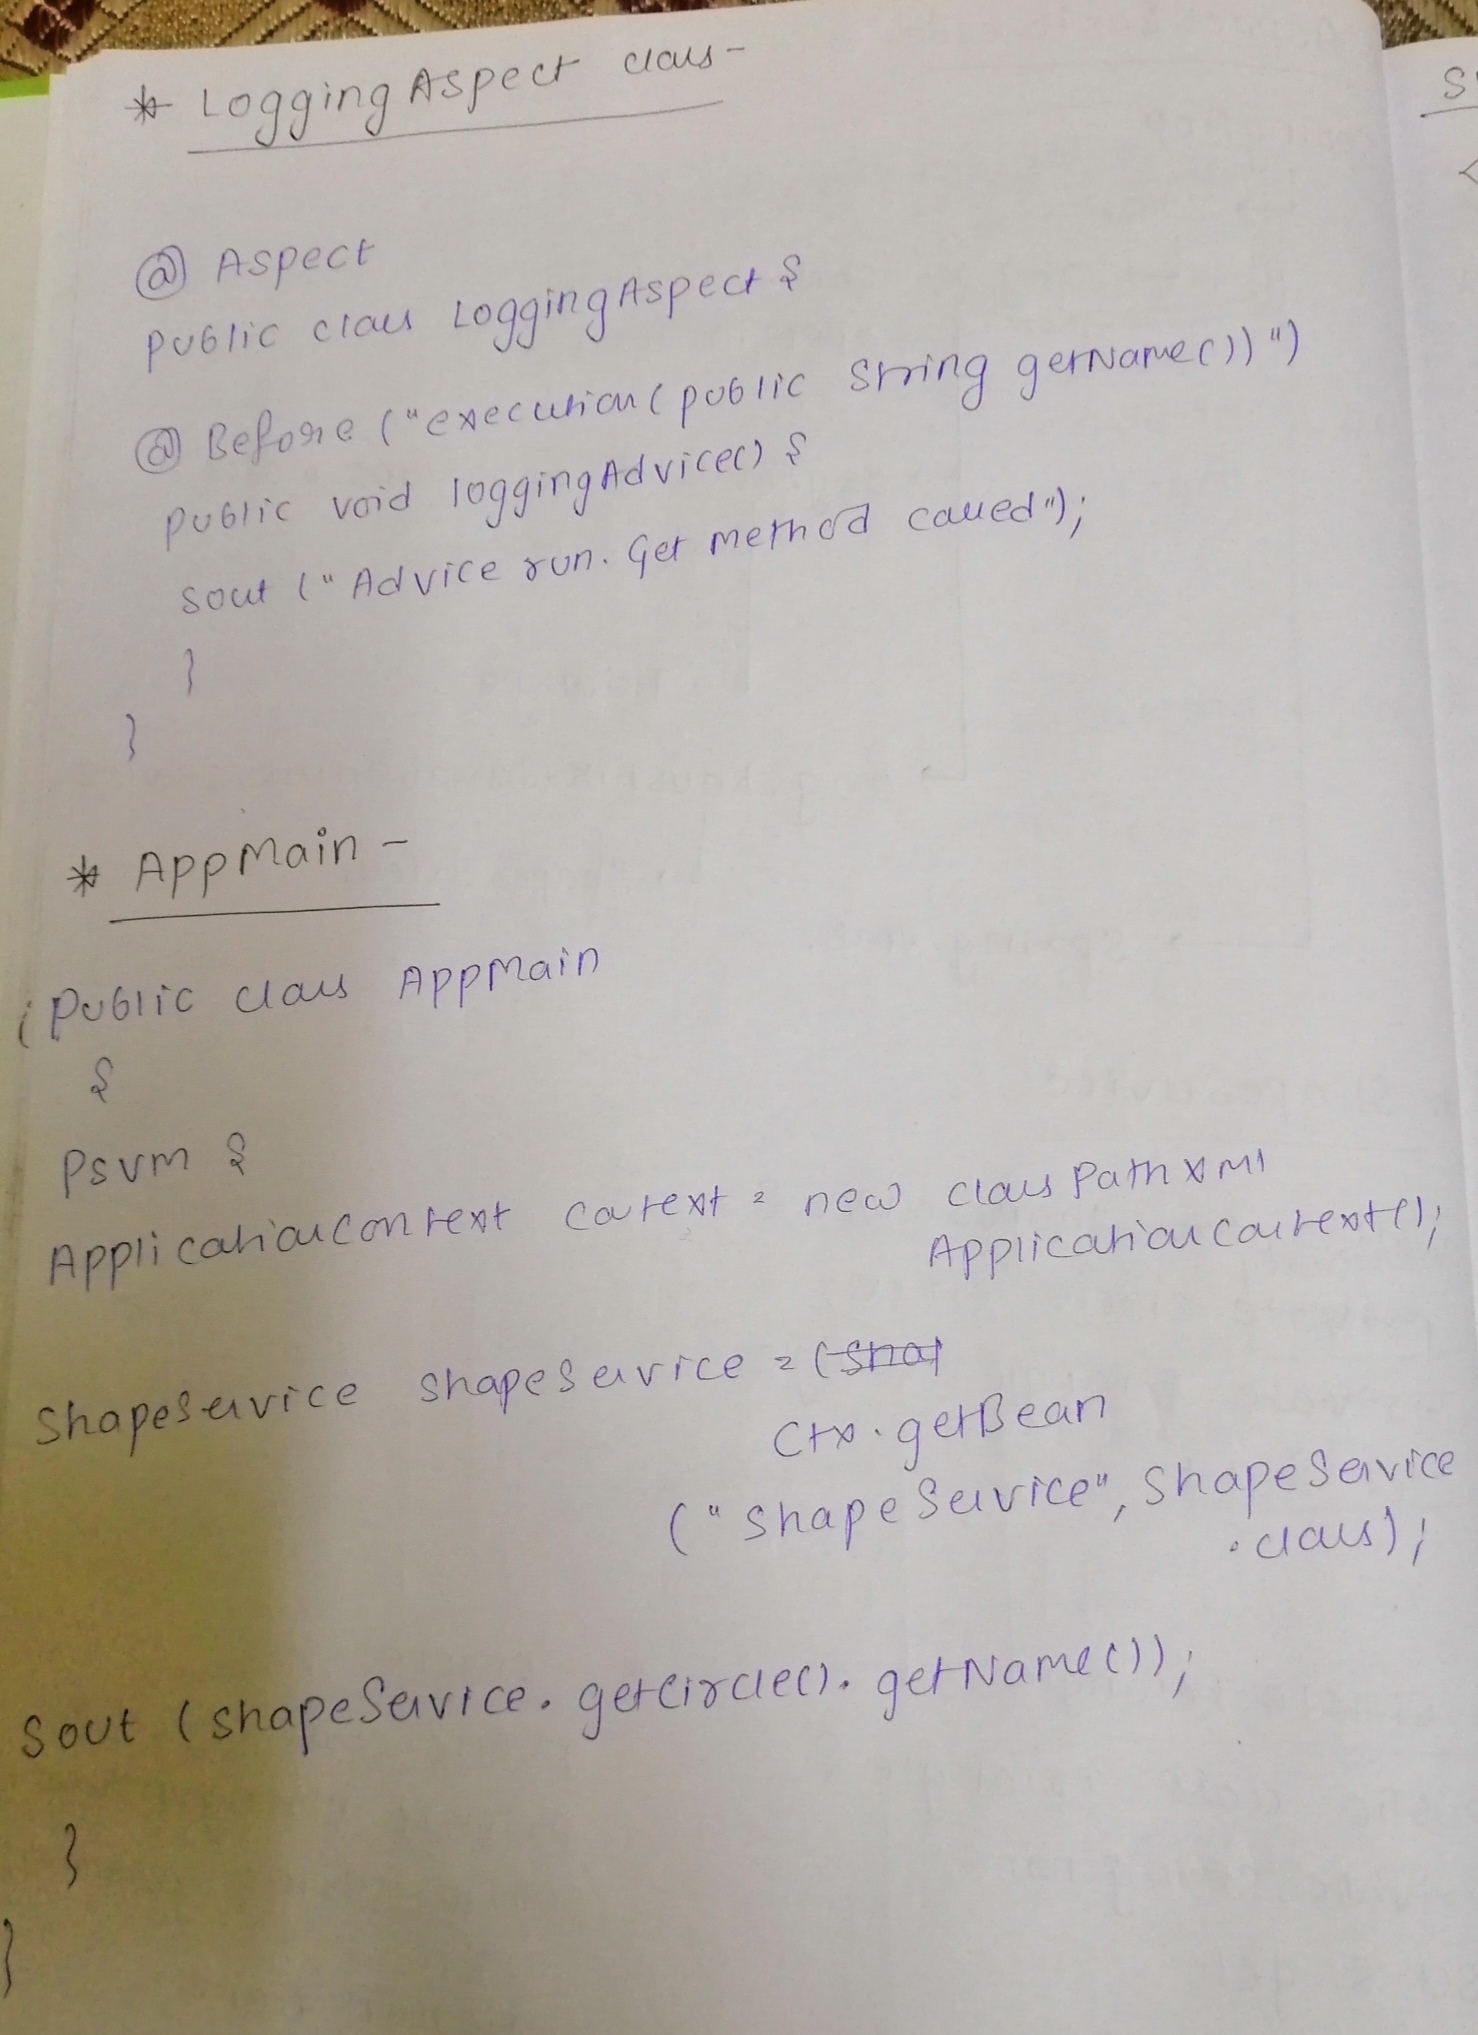 * LoggingAspect class-
@ Aspect
public class LoggingAspect {
@ Before ("execution(public String getName())")
public void loggingAdvice() {
Sout ("Advice run. Get method called");
}
}
* AppMain -
public class AppMain
{
Psvm {
ApplicationContext context = new classPathXml
ApplicationContext();
ShapeService shapeService = (Shap
Ctx.getBean
("shapeService", ShapeService
.class);
Sout (shapeService.getCircle().getName());
}
}